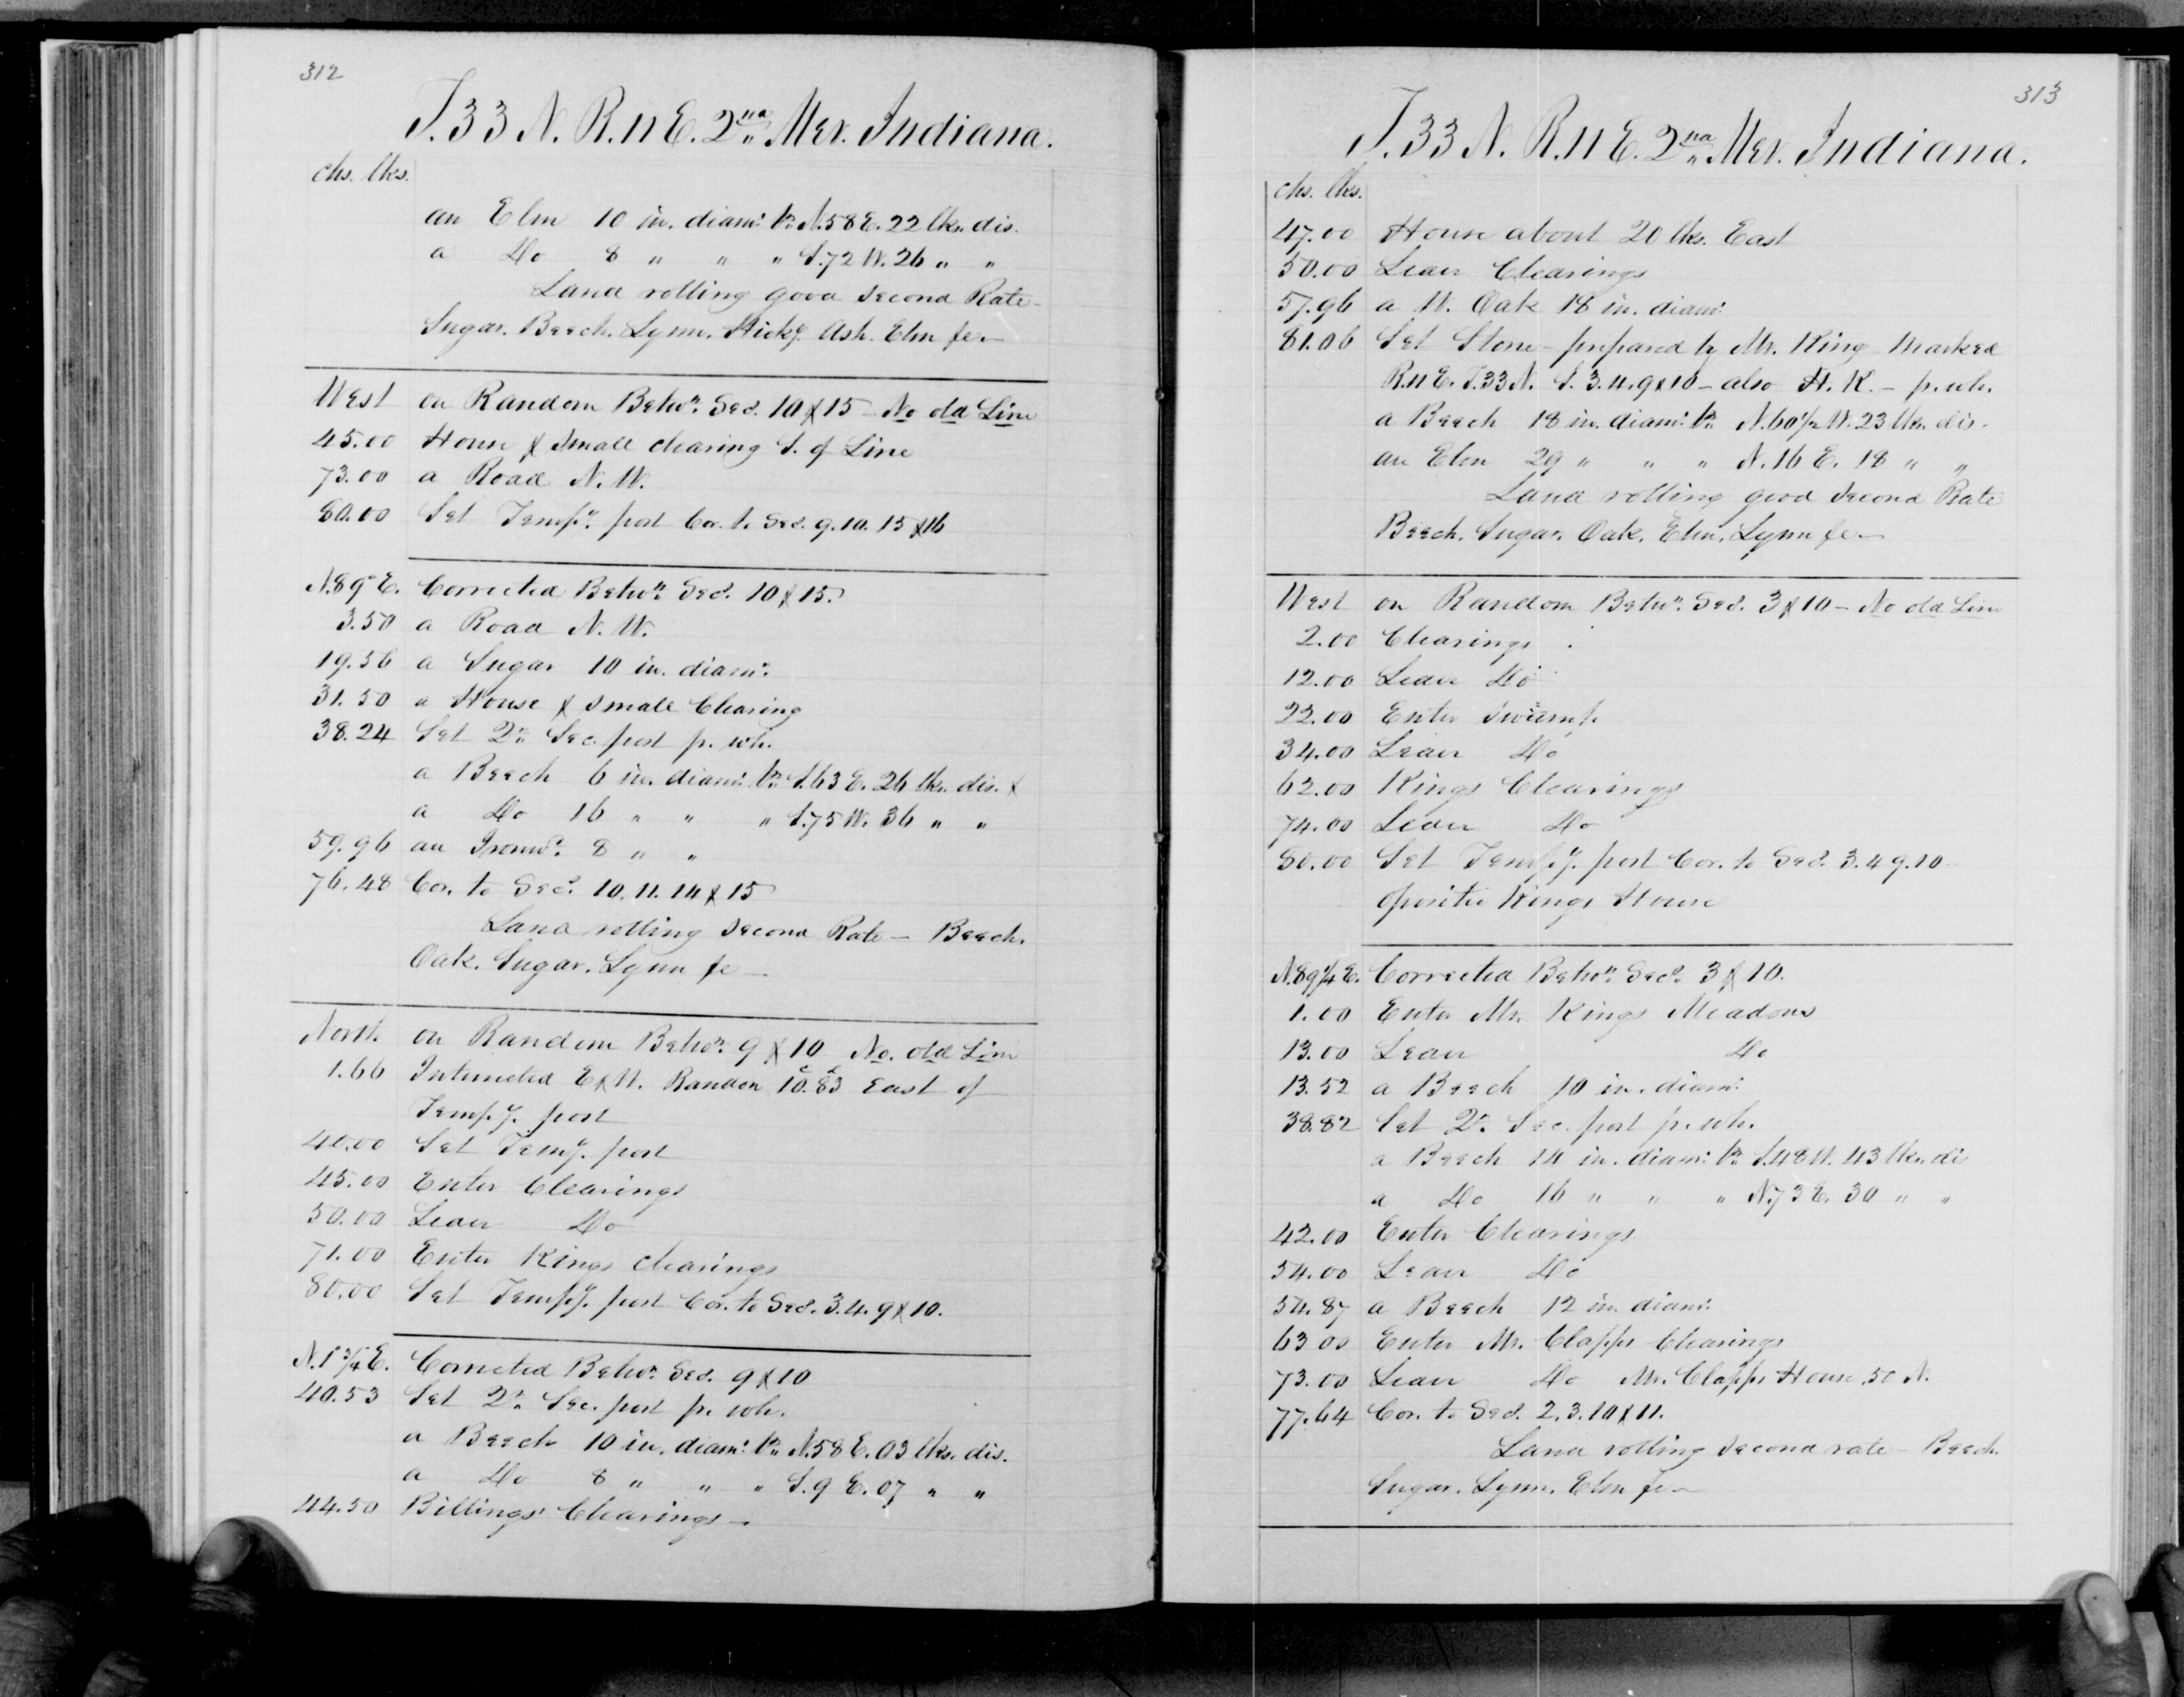 312
T. 33 N. R. 11 E. 2nd Mer. Indiana.
chs. lks.
an Elm 10 in. diamr. br. N. 58 E. 22 lks. dis.
a Do 8 " " " S. 72 W. 26 " "
Land rolling good second Rate
Sugar. Beech. Lynn. Hicky. Ash. Elm &c
West on Random Betwn. Secs. 10 & 15 - No old Line
45.00 House & small clearing S. of Line
73.00 a Road N. W.
80.00 Set Tempy. post Cor. to Secs. 9. 10. 15 & 16
N. 89° E. Corrected Betwn. Secs. 10 & 15.
3.50 a Road N. W.
19.56 a Sugar 10 in. diamr.
31.50 a House & small Clearing
38.24 Set Qr. Sec. post fr. wh.
a Beech 6 in. diamr. br. S. 63 E. 26 lks. dis. &
a Do 16 " " " S. 75 W. 36 " "
59.96 an Ironwd. 8 " "
76.48 Cor. to Secs. 10. 11. 14 & 15
Land rolling second Rate - Beech.
Oak. Sugar. Lynn &c
North. on Random Betwn. 9 & 10 No. old Line
1.66 Intersected E & W. Random 10.83 East of
Tempy. post
40.00 Set Tempy. post
45.00 Enter Clearings
50.00 Leave Do
71.00 Enter Kings clearings
80.00 Set Tempy. post Cor. to Secs. 3. 4. 9 & 10.
N. 1 3/4 E. Corrected Betwn. Secs. 9 & 10
40.53 Set Qr. Sec. post fr. wh.
a Beech 10 in. diamr. br. N. 58 E. 03 lks. dis.
a Do 8 " " " S. 9 E. 07 " "
44.50 Billings' Clearings -
313
T. 33 N. R. 11 E. 2nd Mer. Indiana.
chs. lks.
47.00 House about 20 lks. East
50.00 Leave Clearings
57.96 a W. Oak 18 in. diamr.
81.06 Set Stone - prepared by Mr. King - Marked
R. 11 E. T. 33 N. S. 3. 4. 9 & 10 - also H. K. - fr. wh.
a Beech 18 in. diamr. br. N. 60 1/2 W. 23 lks. dis.
an Elm 29 " " " N. 16 E. 18 " "
Land rolling good second Rate
Beech. Sugar. Oak. Elm. Lynn &c
West on Random Betwn. Secs. 3 & 10 - No old Line
2.00 Clearings
12.00 Leave Do
22.00 Enter Swamp
34.00 Leave Do
62.00 Kings Clearings
74.00 Leave Do
80.00 Set Tempy. post Cor. to Secs. 3. 4 9. 10
Opposite Kings House
N. 89 1/4 E. Corrected Betwn. Secs. 3 & 10.
1.00 Enter Mr. Kings Meadows
13.00 Leave Do
13.52 a Beech 10 in. diamr.
38.82 Set Qr. Sec. post fr. wh.
a Beech 14 in. diamr. br. S. 48 W. 43 lks. dis
a Do 16 " " " N. 73 E. 30 " "
42.00 Enter Clearings
54.00 Leave Do
54.87 a Beech 12 in. diamr.
63 00 Enter Mr. Clapps Clearings
73.00 Leave Do Mr. Clapps House 50 N.
77.64 Cor. to Secs. 2. 3. 10 & 11.
Land rolling second rate - Beech.
Sugar. Lynn. Elm &c